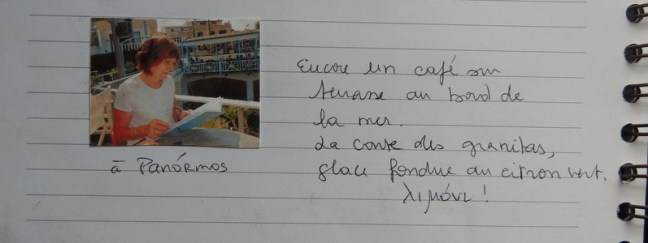 à Panórmos
Encore un café sur
terrasse au bord de
la mer.
La conte des granitas,
glace fondue au citron vert.
λιμόνι !